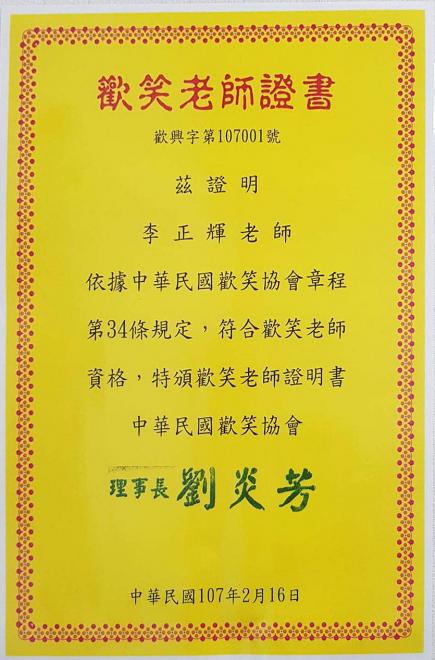 歡笑老師證書
歡興字第107001號
茲證明
李正輝老師
依據中華民國歡笑協會章程
第34條規定，符合歡笑老師
資格，特頒歡笑老師證明書
中華民國歡笑協會
理事長 劉炎芳
中華民國107年2月16日